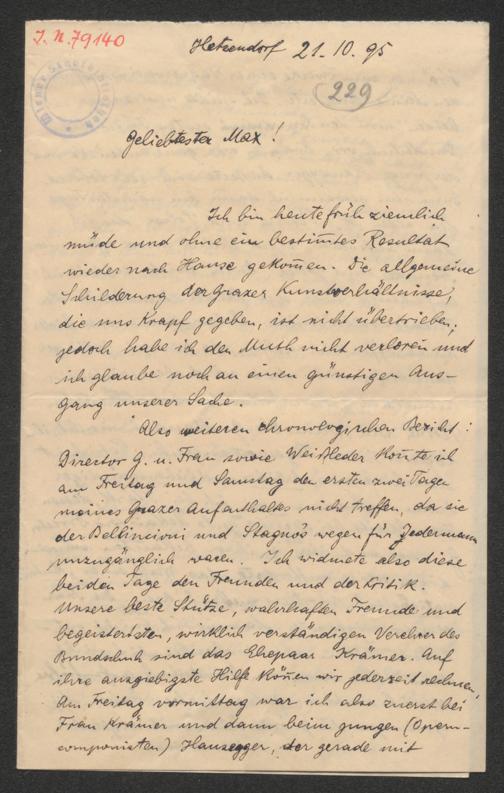 J. N. 79140
Hetzendorf 21. 10. 95
229
Geliebtester Max!
Ich bin heute früh ziemlich
müde und ohne ein bestimtes Resultat
wieder nach Hause gekom̄en. Die allgemeine
Schilderung der Grazer Kunstverhältnisse,
die uns Krapf gegeben, ist nicht übertrieben;
jedoch habe ich den Muth nicht verloren und
ich glaube noch an einen günstigen Aus-
gang unserer Sache.
Also weiteren chronologischen Bericht:
Director G. u. Frau sowie Weißleder kon̄te ich
am Freitag und Samstag den ersten zwei Tagen
meines Grazer Aufenthaltes nicht treffen, da sie
der Bellincioni und Stagnos wegen für Jedermann
unzugänglich waren. Ich widmete also diese
beiden Tage den Freunden und der Kritik.
Unsere beste Stütze, wahrhaften Freunde und
begeistertsten, wirklich verständigen Verehrer des
Bundschuh sind das Ehepaar Krämer. Auf
ihre ausgiebigste Hilfe kön̄en wir jederzeit rechnen.
Am Freitag vormittag war ich also zuerst bei
Frau Krämer und dann beim jungen (Opern-
componisten) Hausegger, der gerade mit